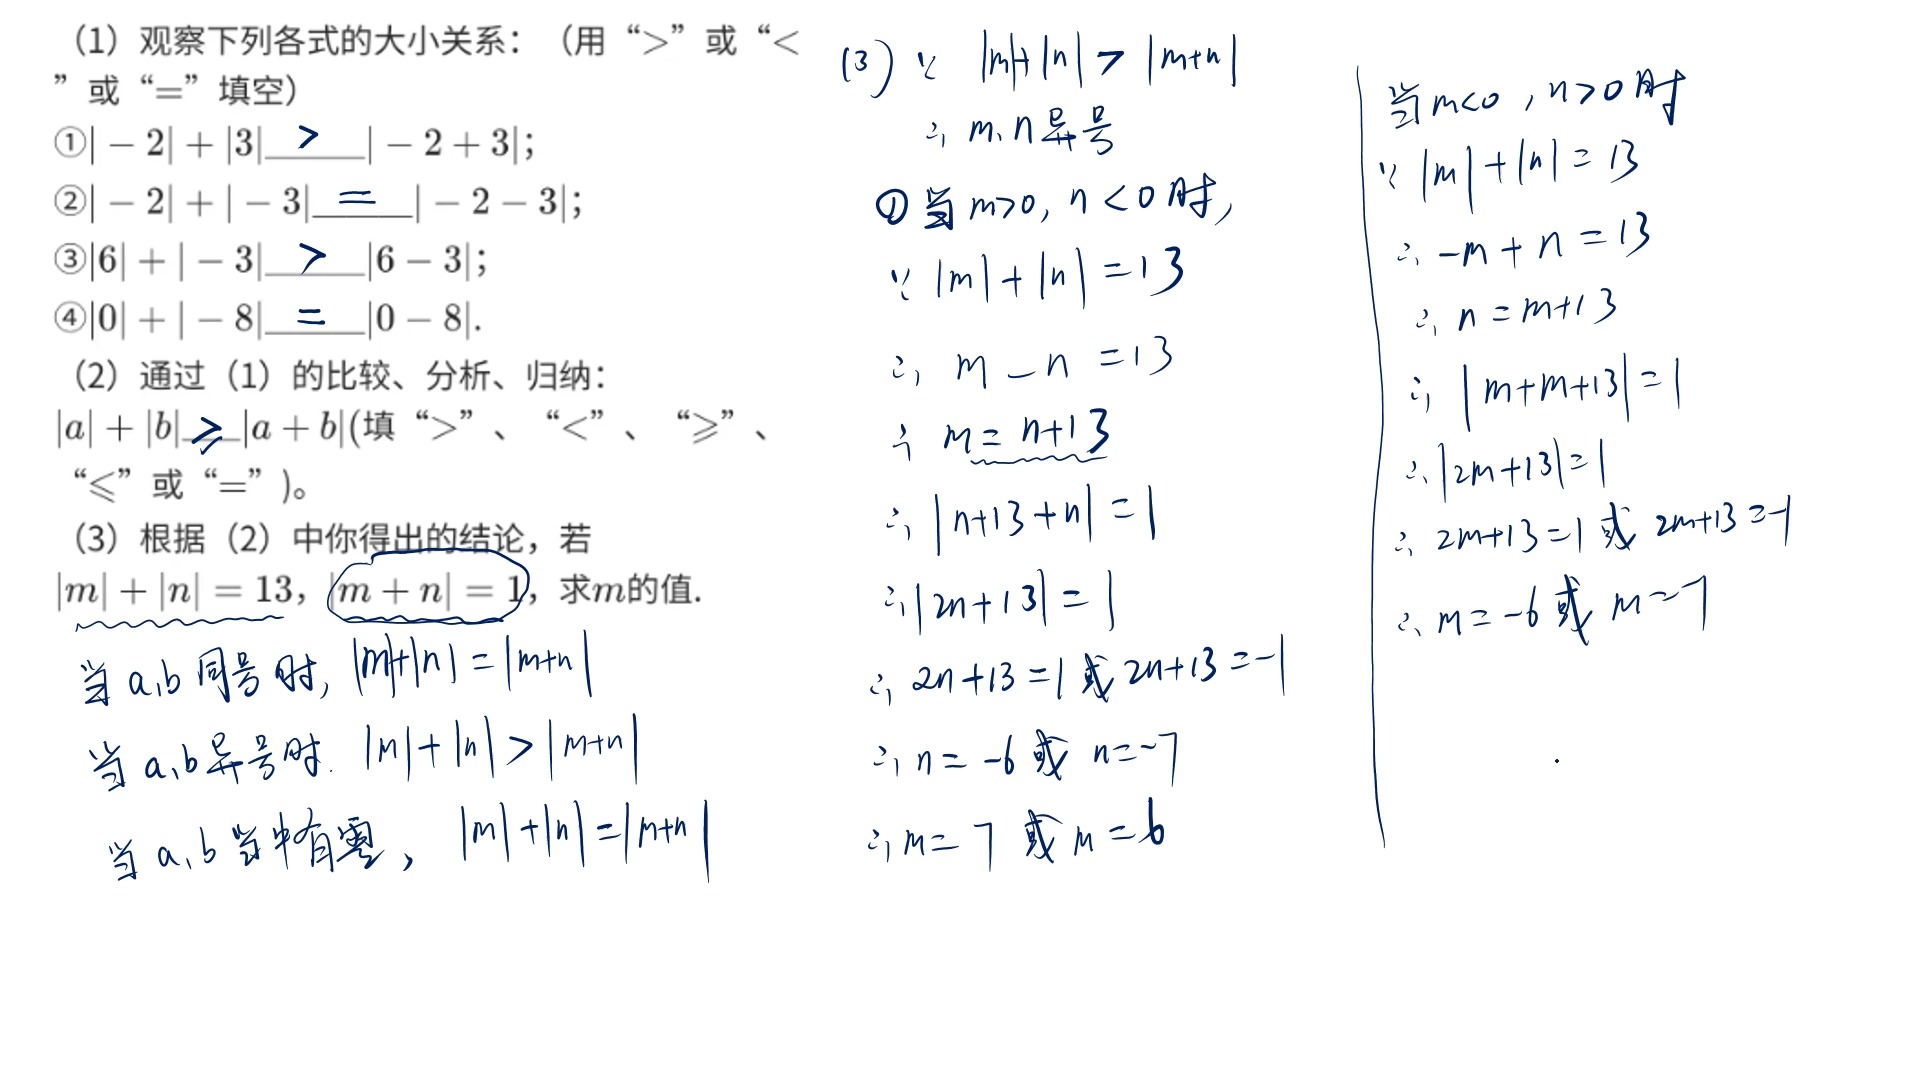 （1）观察下列各式的大小关系：（用“>”或“<
”或“=”填空）
①|－2|＋|3| > |－2＋3|；
②|－2|＋|－3| = |－2－3|；
③|6|＋|－3| > |6－3|；
④|0|＋|－8| = |0－8|.
（2）通过（1）的比较、分析、归纳：
|a|＋|b| ⩾ |a＋b|(填“>”、“<”、“⩾”、
“⩽”或“=”)。
（3）根据（2）中你得出的结论，若
|m|＋|n|=13，|m＋n|=1，求m的值.
当a、b同号时, |m|+|n|=|m+n|
当a、b异号时. |m|+|n|>|m+n|
当a、b当中有零, |m|+|n|=|m+n|
(3) ∵ |m|+|n|>|m+n|
∴ m、n异号
①当m>0, n<0时,
∵ |m|+|n|=13
∴ m-n=13
∴ m=n+13
∴ |n+13+n|=1
∴|2n+13|=1
∴ 2n+13=1或2n+13=-1
∴ n=-6或 n=-7
∴ m=7 或 m=6
当m<0, n>0时
∵ |m|+|n|=13
∴ -m+n=13
∴ n=m+13
∴ |m+m+13|=1
∴ |2m+13|=1
∴ 2m+13=1或 2m+13=-1
∴ m=-6或 m=-7